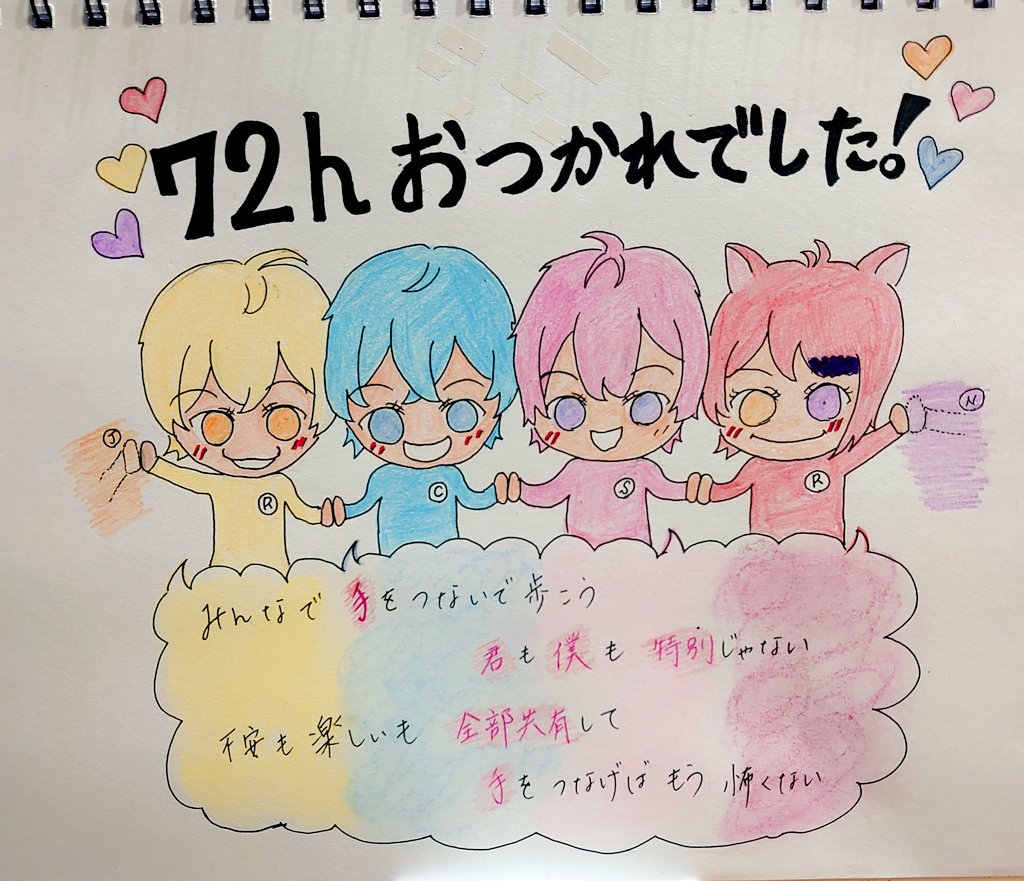 72hおつかれでした!
J
R
C
S
R
N
みんなで手をつないで歩こう
君も僕も特別じゃない
不安も楽しいも全部共有して
手をつなげばもう怖くない